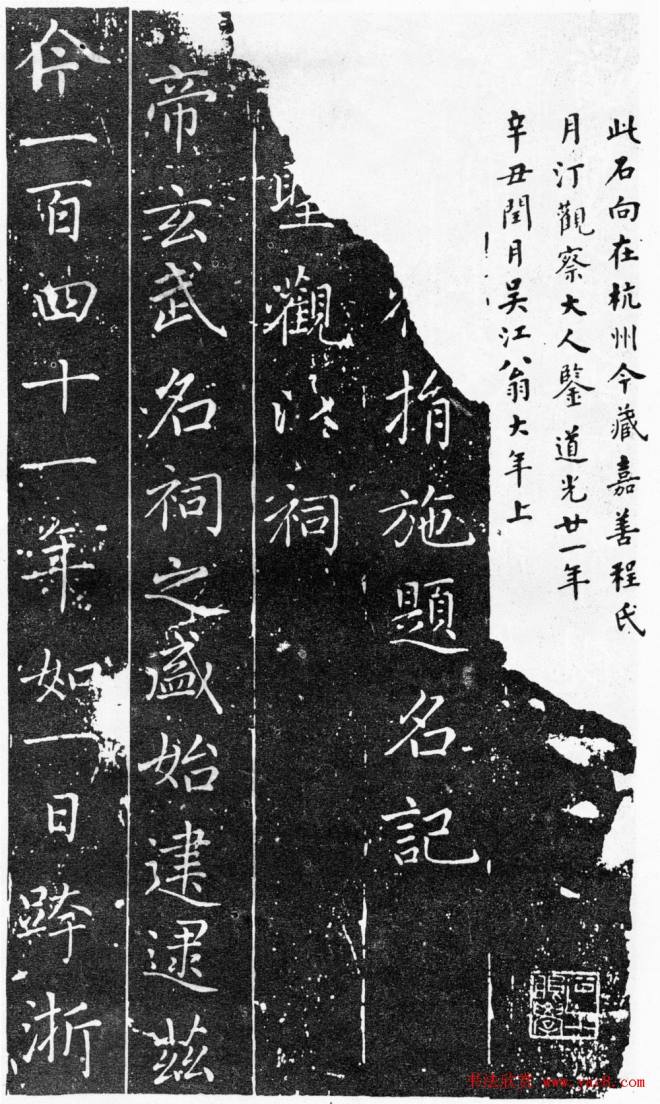 此石向在杭州今藏嘉善程氏
月汀觀察大人鑒 道光廿一年
辛丑閏月吳江翁大年上
捐施題名記
聖觀 祠
帝玄武名祠之盛始建逮茲
今一百四十一年如一日跨浙
书法欣赏 www.yac8.com